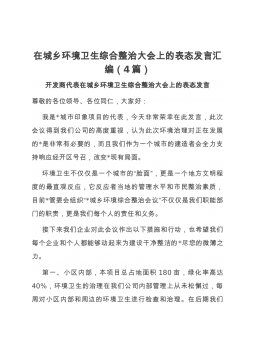 在城乡环境卫生综合整治大会上的表态发言汇
编（4篇）
开发商代表在城乡环境卫生综合整治大会上的表态发言
尊敬的各位领导、各位同仁，大家好：
我是*城市印象项目的代表，今天非常荣幸在此发言，此次
会议得到我们公司的高度重视，认为此次环境治理对正在发展
的*是非常有必要的，而且我们作为一个城市的建造者会全力支
持响应经开区号召，改变*现有局面。
环境卫生不仅仅是一个城市的“脸面”，更是一个地方文明程
度的最直观反应，它反应者当地的管理水平和市民整治素质，
目前*管委会组织“*城乡环境综合整治会议”不仅仅是我们职能部
门的职责，更是我们每个人的责任和义务。
接下来我们企业对此会议作出以下措施和行动，也希望我们
每个企业和个人都能够动起来为建设干净整洁的*尽您的微薄之
力。
第一、小区内部，本项目总占地面积 180 亩，绿化率高达
40%，环境卫生的治理在我们公司内部管理上从未松懈过，每
周对小区内部和周边的环境卫生进行检查和治理。在后期我们